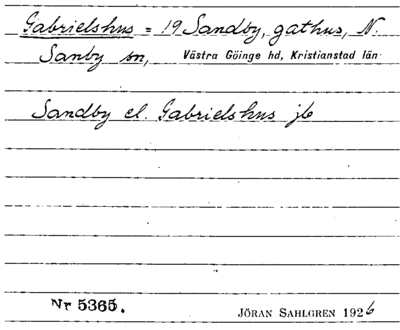 Gabrielshus = 19 Sandby, gathus, N.
Sanby sn, Västra Göinge hd, Kristianstad län
Sandby el. Gabrielshus jb
Nr 5365.
JÖRAN SAHLGREN 1926